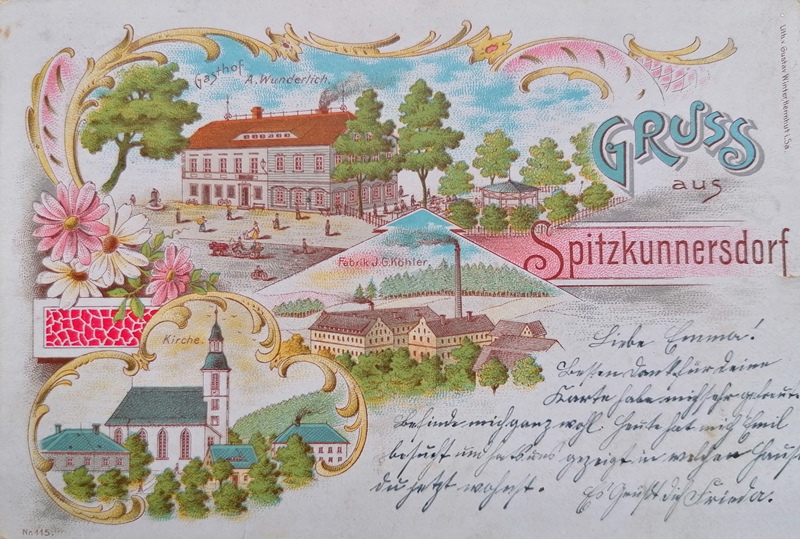 Gasthof
A. Wunderlich.
Lith. v. Gustav Winter, Herrnhut i. Sa.
GRUSS
aus
Spitzkunnersdorf
Fabrik J.G. Köhler.
Kirche.
Liebe Emma!
Besten Dank für deine
Karte habe mich sehr gefreut
Befinde mich ganz wohl. Heute hat mich Emil
besucht und gezeigt in welchen Haus
du jetzt wohnst. Es Grüßt dich Frieda.
Nr. 115.